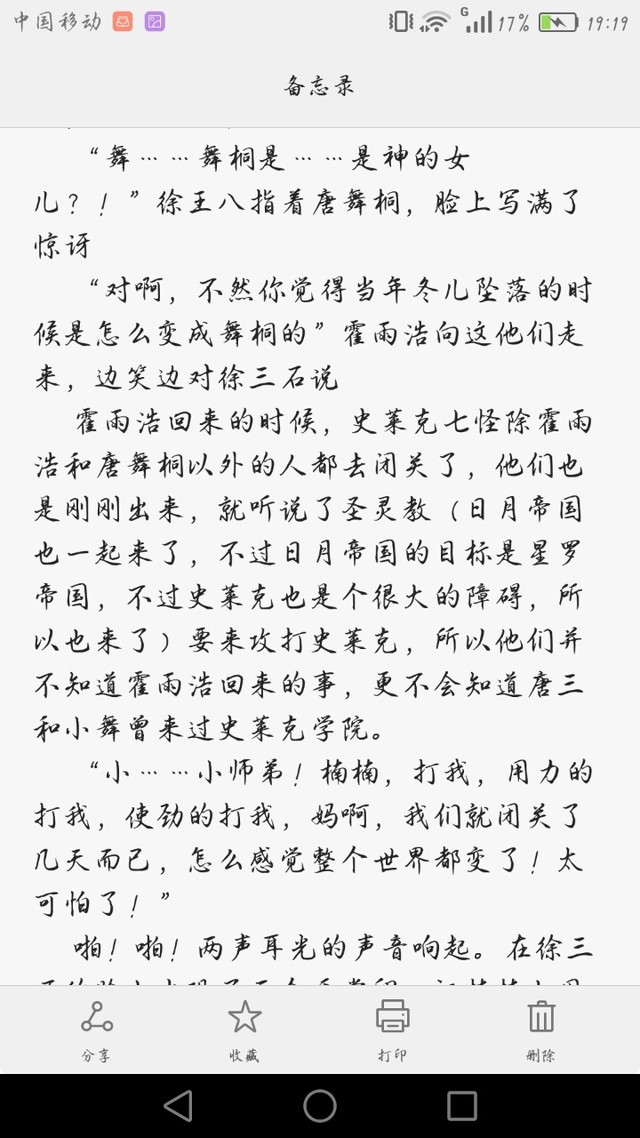 中国移动 G 17% 19:19
备忘录
“舞……舞桐是……是神的女
儿？！”徐王八指着唐舞桐，脸上写满了
惊讶
“对啊，不然你觉得当年冬儿坠落的时
候是怎么变成舞桐的”霍雨浩向这他们走
来，边笑边对徐三石说
霍雨浩回来的时候，史莱克七怪除霍雨
浩和唐舞桐以外的人都去闭关了，他们也
是刚刚出来，就听说了圣灵教（日月帝国
也一起来了，不过日月帝国的目标是星罗
帝国，不过史莱克也是个很大的障碍，所
以也来了）要来攻打史莱克，所以他们并
不知道霍雨浩回来的事，更不会知道唐三
和小舞曾来过史莱克学院。
“小……小师弟！楠楠，打我，用力的
打我，使劲的打我，妈啊，我们就闭关了
几天而已，怎么感觉整个世界都变了！太
可怕了！”
啪！啪！两声耳光的声音响起。在徐三
分享 收藏 打印 删除